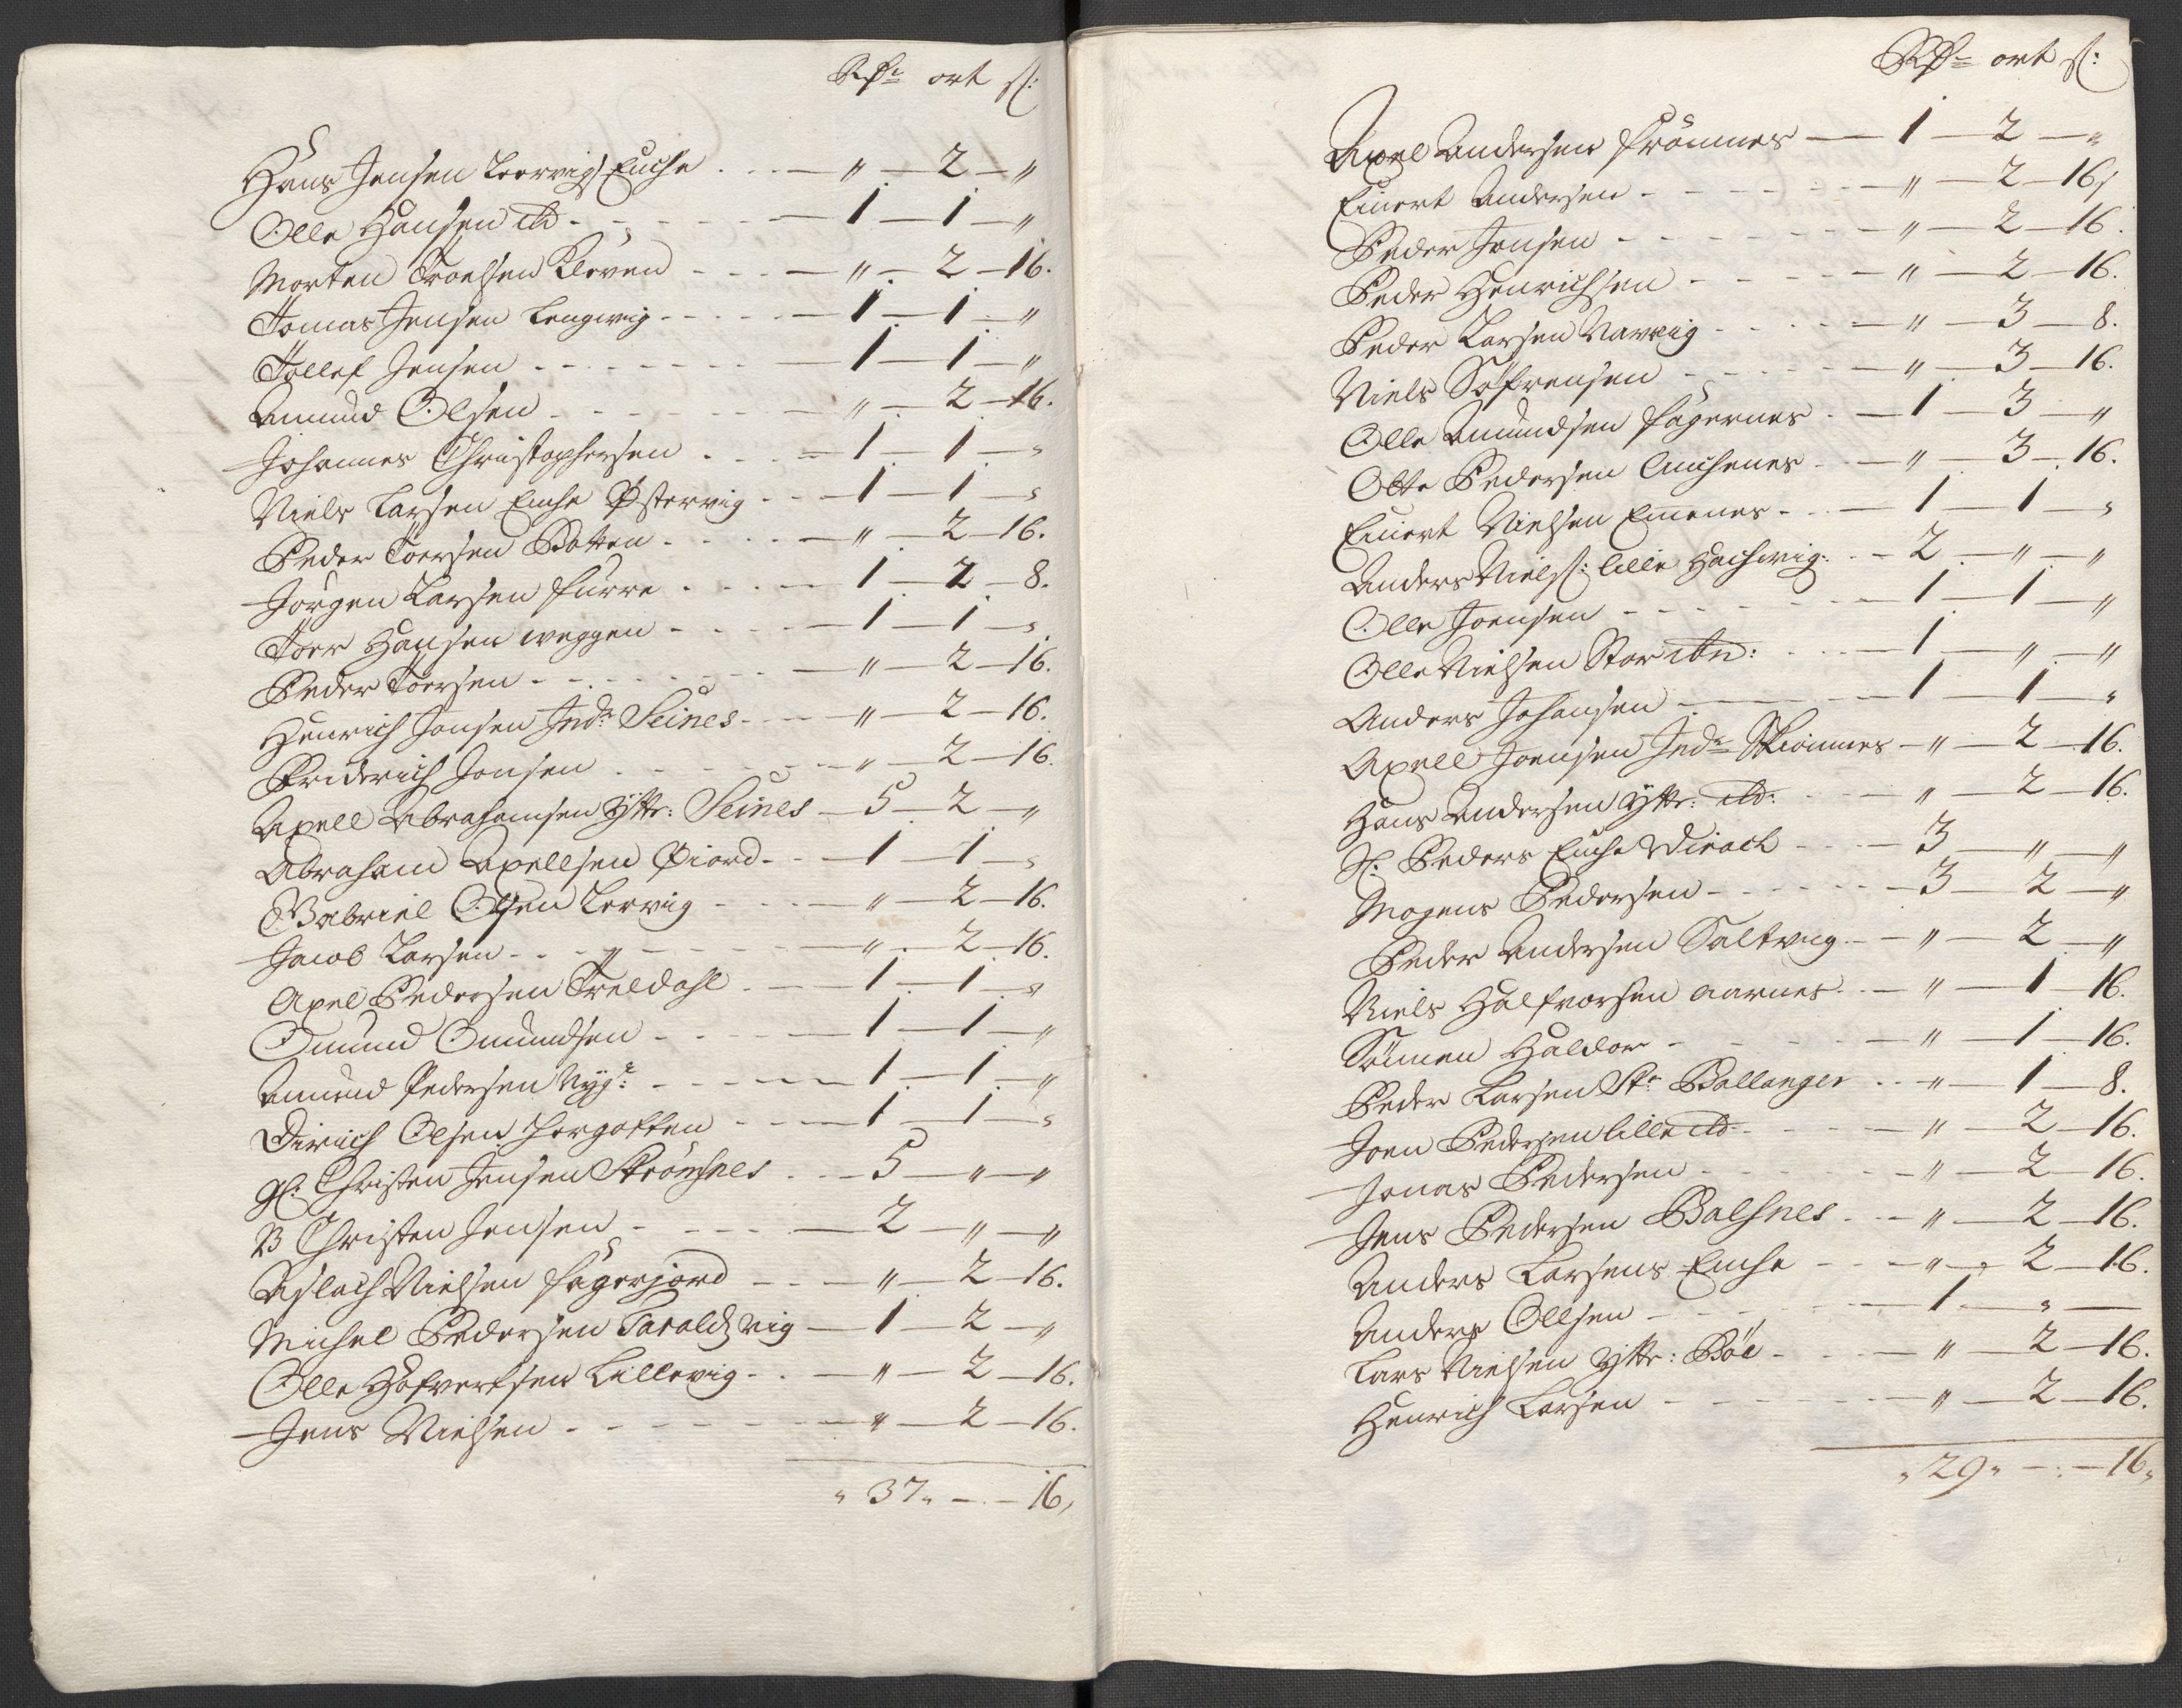 Rdr ort ſ:
Hans Jensen Leervig Encke . . . — " — 2 — "
Olle Hansen itd - - - — 1 — 1 — "
Morten Troelsen Kleven - - - — " — 2 — 16.
Tomas Jensen Lengwig - - - - — 1 — 1 — "
Tollef Jensen . - - - - - — 1 — 1 — "
Amund Olsen - - - - - — " — 2 — 16.
Johannes Christophersen . - - — 1 — 1 — "
Niels Larsen Encke Østervig - - — 1 — 1 — "
Peder Toersen Botten . - - - — " — 2 — 16.
Jørgen Larsen furre . - - - — 1 — 2 — 8.
Toer Hansen weggen - - - - — 1 — 1 — "
Peder Toersen - - - - - — " — 2 — 16.
Henrich Jonsen Indr Seines - - - — " — 2 — 16.
Friderich Jonsen . - - - - — " — 2 — 16.
Axell Abrahamsen Yttr: Seines — 5 — 2 — "
Abraham Axellsen Øiord - - — 1 — 1 — "
Gabriel Olsen Lervig - - - — " — 2 — 16.
Jacob Larsen - - " - - - — " — 2 — 16.
Axel Pedersen Treldahl - - — 1 — 1 — "
Omund Omundsen - - - - — 1 — 1 — "
Amund Pedersen Nyg: - - - - — 1 — 1 — "
Dirich Olsen Horgotten - - - — 1 — 1 — "
gl: Christen Jensen Strømsnes - - — 5 — " — "
B Christen Jensen - - - - — 2 — " — "
Aslach Nielsen fagerjord - - - — " — 2 — 16.
Michel Pedersen Taraldzvig — 1 — 2 — "
Olle Hafvertsen Lillevig - - — " — 2 — 16.
Jens Nielsen - - - - - — " — 2 — 16.
" 37 " — . — 16,
Rdr ort ſ:
Axel Andersen frømnes — 1 — 2 — "
Einert Andersen - - - - - — " — 2 — 16,
Peder Jonsen - - - - - — " — 2 — 16.
Peder Henrichsen - - - - — " — 2 — 16.
Peder Larsen Narvig - - - - — " — 3 — 8.
Niels Søfrensen - - - - — " — 3 — 16.
Olle Amundsen fagernes - — 1 — 3 — "
Otte Pedersen Anchenes - — " — 3 — 16.
Einert Nielsen Emenes - - — 1 — 1 — "
Anders Nielsſ: lille Hachwig - - — 2 — " — "
Olle Joensen - - - - - — 1 — 1 — "
Olle Nielsen Stor itn: - - — 1 — " — "
Anders Johansen - - - - — 1 — 1 — "
Axell Joensen Indr Skiomnes — " — 2 — 16.
Hans Andersen Yttr: itd: - - — " — 2 — 16.
Sl: Peders Encke Virach - - - — 3 — " — "
Mogens Pedersen - - - - - — 3 — 2 — "
Peder Andersen Saltvig - - — " — 2 — "
Niels Halfvorsen aarnes - - — " — 1 — 16.
Sønnen Haldor - - - - — " — 1 — 16.
Peder Larsen Str Ballangen - - — " — 1 — 8.
Joen Pedersen lille itd - - - — " — 2 — 16.
Jonas Pedersen - - - - - — " — 2 — 16.
Jens Pedersen Balsnes - - — " — 2 — 16.
Anders Larsens Encke - - - — " — 2 — 16.
Anders Ollsen - - - - - — 1 — " —
Lars Nielsen Yttr: Bøe - - - — " — 2 — 16.
Henrich Larsen - - - - - — " — 2 — 16.
" 29 " — : — 16 "